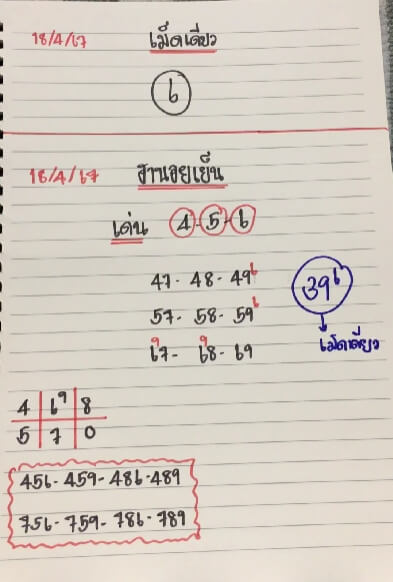 18/4/67 เม็ดเดียว
6
18/4/67 ฮานอยเย็น
เด่น 4-5-6
47- 48- 49 6
57- 58- 59 6
67- 68- 69
9 9
39 6
เม็ดเดียว
4 6 9 8
5 7 0
456- 459- 486- 489
756- 759- 786- 789